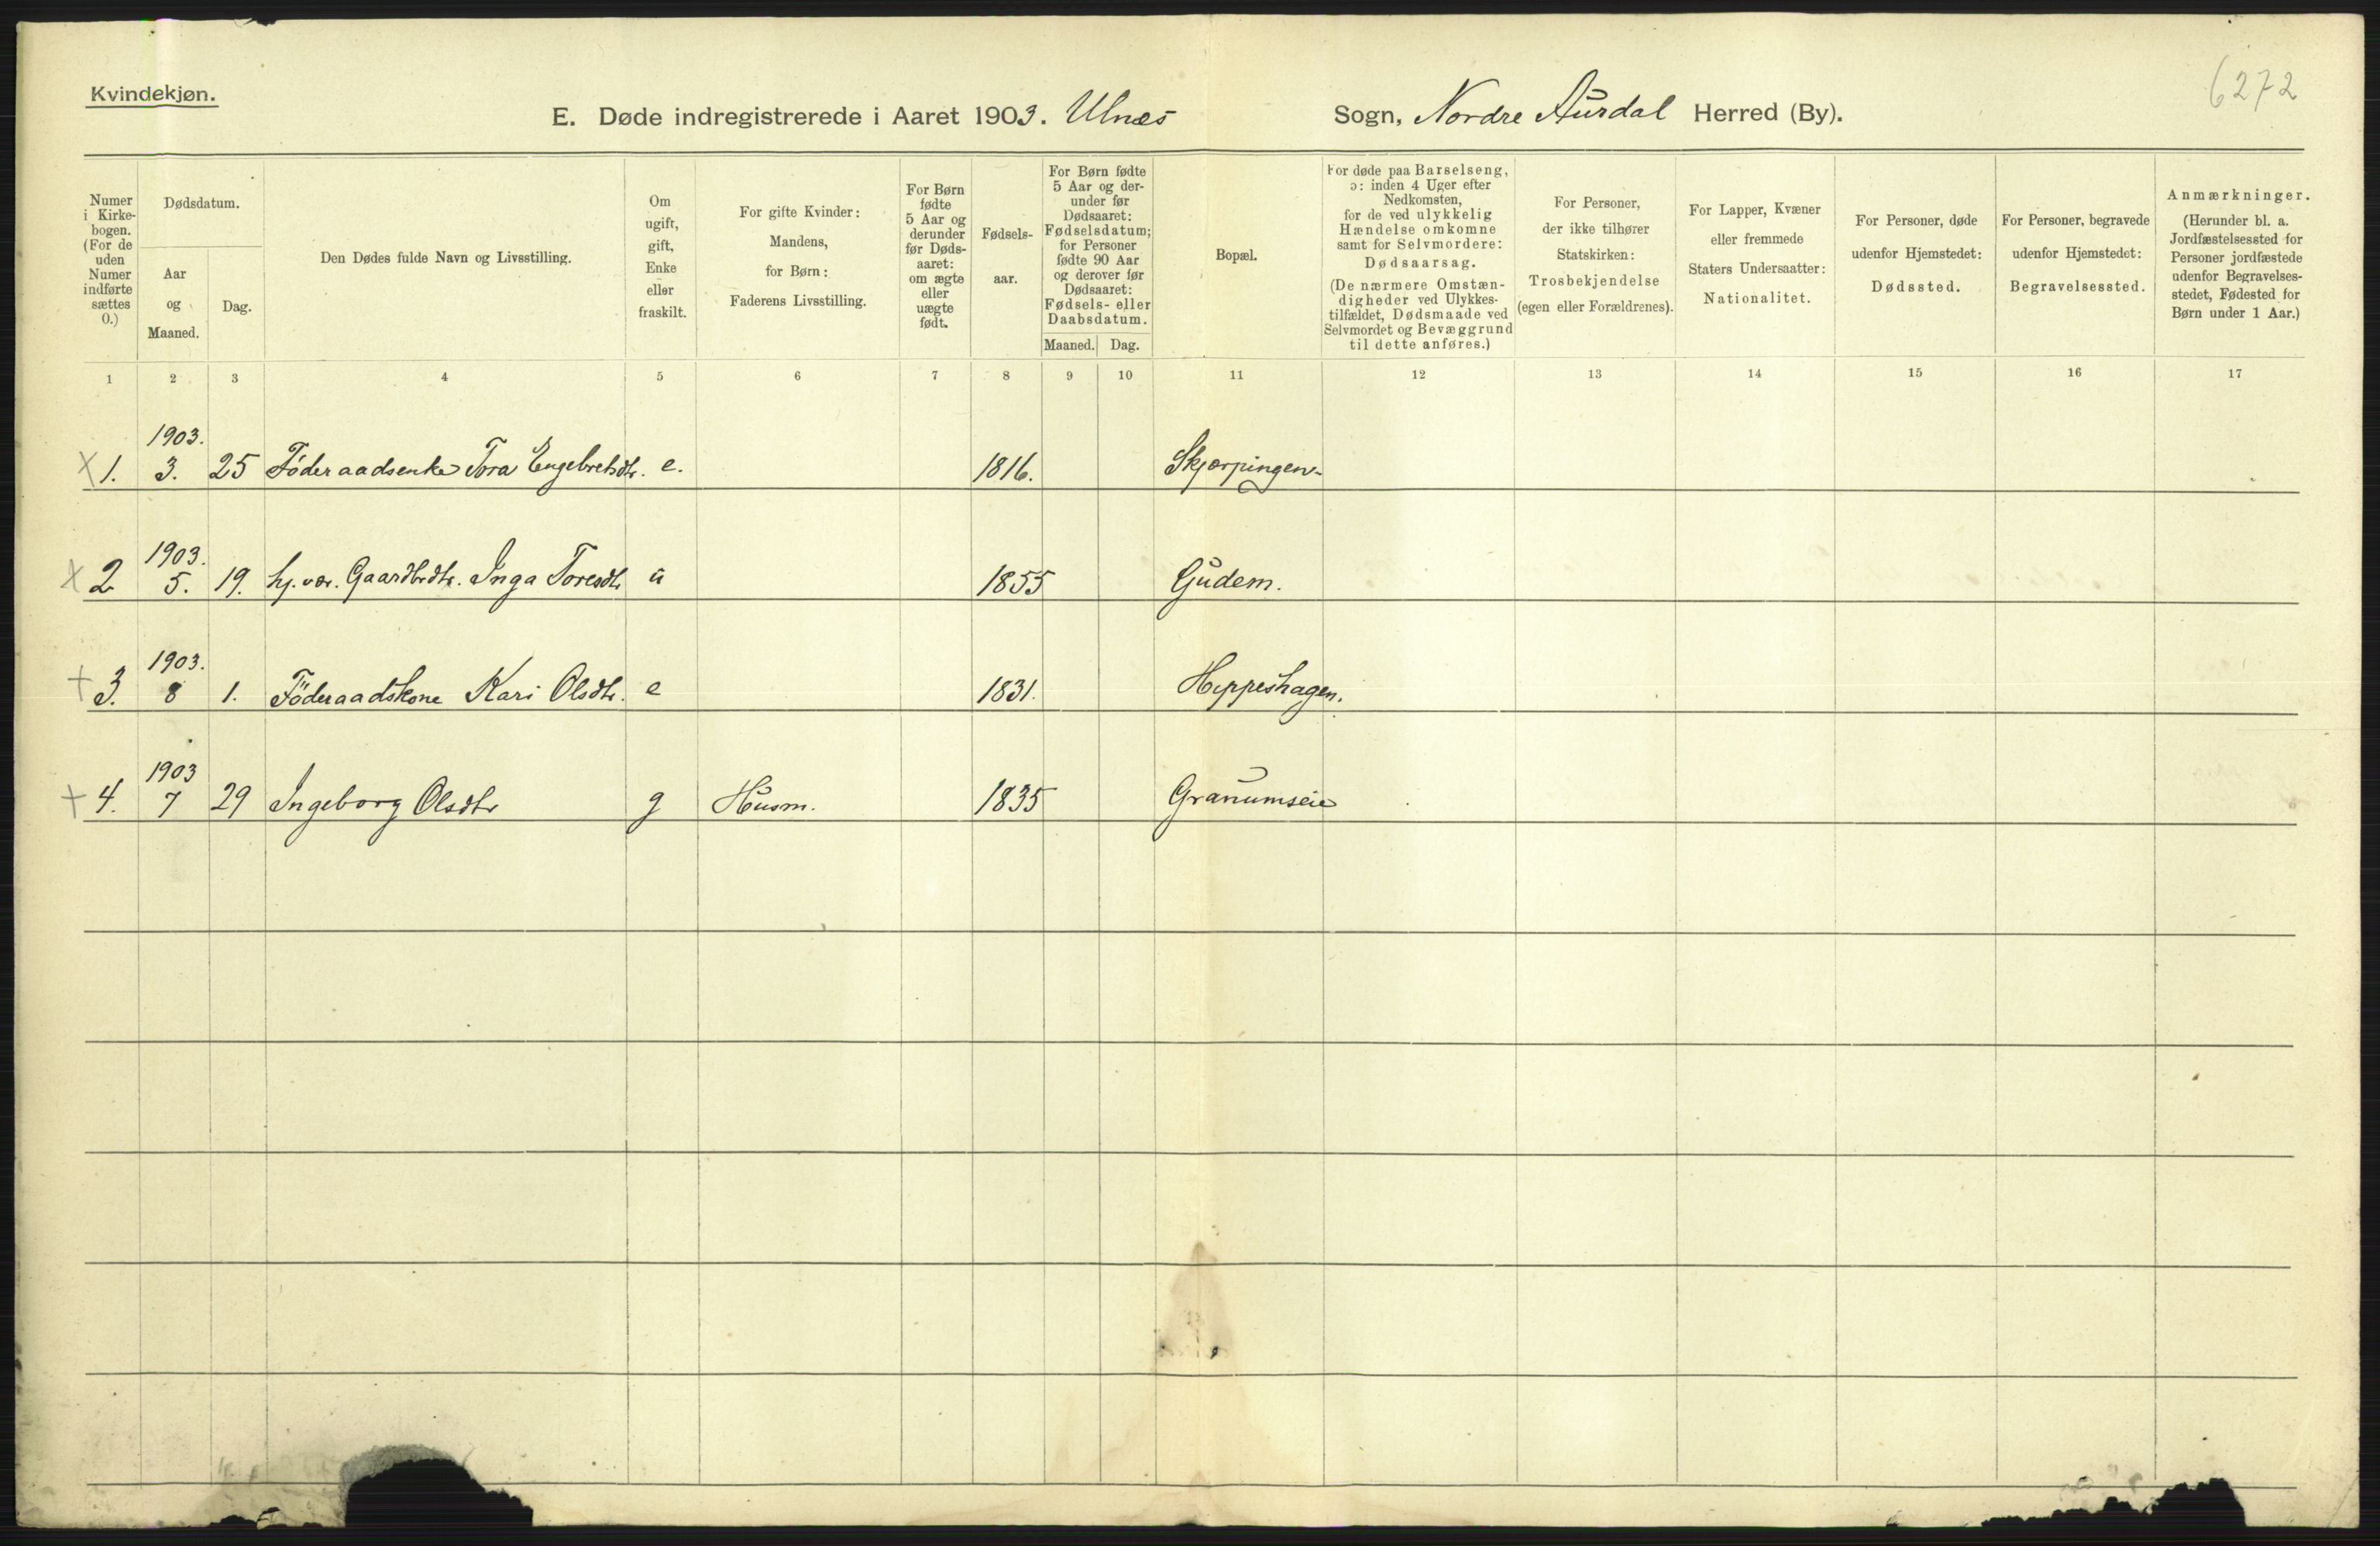 Kvindekjøn.
6272
E. Døde indregistrerede i Aaret 1903. Ulnæs Sogn, Nordre Aurdal Herred (By).
Numer i Kirke-bogen. (For de uden Numer indførte sættes 0.)
Dødsdatum.
Aar og Maaned.
Dag.
Den Dødes fulde Navn og Livsstilling.
Om ugift, gift, Enke eller fraskilt.
For gifte Kvinder: Mandens, for Børn: Faderens Livsstilling.
For Børn fødte 5 Aar og derunder før Døds-aaret: om ægte eller uægte født.
Fødsels-aar.
For Børn fødte 5 Aar og der-under før Dødsaaret: Fødselsdatum; for Personer fødte 90 Aar og derover før Dødsaaret: Fødsels- eller Daabsdatum.
Maaned. Dag.
Bopæl.
For døde paa Barselseng, ɔ: inden 4 Uger efter Nedkomsten, for de ved ulykkelig Hændelse omkomne samt for Selvmordere: Dødsaarsag. (De nærmere Omstæn-digheder ved Ulykkes-tilfældet, Dødsmaade ved Selvmordet og Bevæggrund til dette anføres.)
For Personer, der ikke tilhører Statskirken: Trosbekjendelse (egen eller Forældrenes).
For Lapper, Kvæner eller fremmede Staters Undersaatter: Nationalitet.
For Personer, døde udenfor Hjemstedet: Dødssted.
For Personer, begravede udenfor Hjemstedet: Begravelsessted.
Anmærkninger. (Herunder bl. a. Jordfæstelsessted for Personer jordfæstede udenfor Begravelses-stedet, Fødested for Børn under 1 Aar.)
1 2 3 4 5 6 7 8 9 10 11 12 13 14 15 16 17
1903.
× 1. 3. 25 Föderaadsenke Tora Engebretsdtr. e. 1816. Skjærpingen.
1903.
× 2 5. 19. hj. vær. Gaardbrdtr. Inga Toresdtr u 1855 Gudem.
1903.
+ 3. 8 1. Föderaadskone Kari Olsdtr. e 1831. Hippeshagen.
1903
+ 4. 7 29 Ingeborg Olsdtr g Husm. 1835 Granumseie